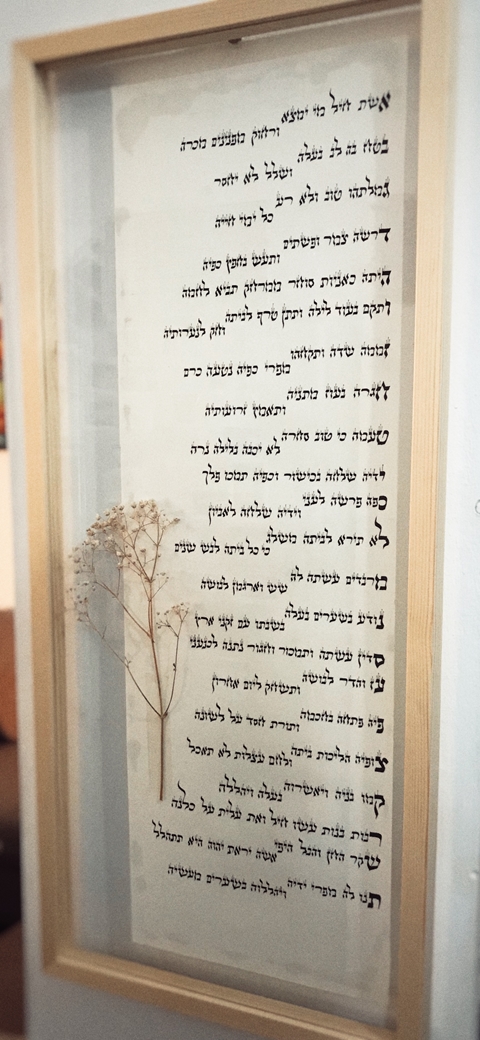 אשת חיל מי ימצא ורחוק מפנינים מכרה
בטח בה לב בעלה ושלל לא יחסר
גמלתהו טוב ולא רע כל ימי חייה
דרשה צמר ופשתים ותעש בחפץ כפיה
היתה כאניות סוחר ממרחק תביא לחמה
ותקם בעוד לילה ותתן טרף לביתה וחק לנערותיה
זממה שדה ותקחהו מפרי כפיה נטעה כרם
חגרה בעוז מתניה ותאמץ זרועותיה
טעמה כי טוב סחרה לא יכבה בלילה נרה
ידיה שלחה בכישור וכפיה תמכו פלך
כפה פרשה לעני וידיה שלחה לאביון
לא תירא לביתה משלג כי כל ביתה לבש שנים
מרבדים עשתה לה שש וארגמן לבושה
נודע בשערים בעלה בשבתו עם זקני ארץ
סדין עשתה ותמכור וחגור נתנה לכנעני
עז והדר לבושה ותשחק ליום אחרון
פיה פתחה בחכמה ותורת חסד על לשונה
צופיה הליכות ביתה ולחם עצלות לא תאכל
קמו בניה ויאשרוה בעלה ויהללה
רבות בנות עשו חיל ואת עלית על כלנה
שקר החן והבל היפי אשה יראת יהוה היא תתהלל
תנו לה מפרי ידיה ויהללוה בשערים מעשיה